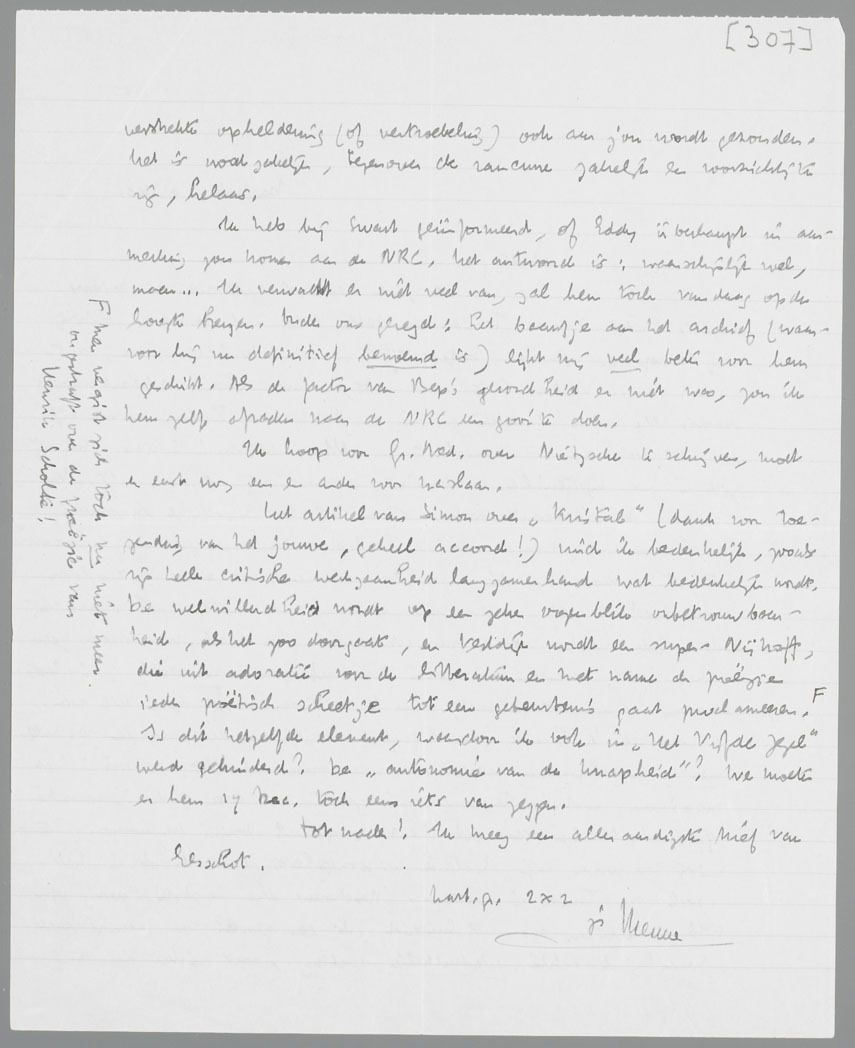 [307]
verstrekte opheldering (of vertroebeling) ook aan jou wordt gezonden.
het is noodzakelijk, tegenover de rancune zakelijk en voorzichtig te
zijn, helaas.
Ik heb bij Swart geïnformeerd, of Eddy überhaupt in aan-
merking zou komen aan de NRC. het antwoord is: waarschijnlijk wel,
maar... Ik verwacht er niet veel van, zal hem toch vandaag op de
hoogte brengen. Onder ons gezegd: het baantje aan het archief (waar-
voor hij nu definitief benoemd is) lijkt mij veel beter voor hem
geschikt. Als de factor van Bep's gezondheid er niet was, zou ik
hem zelfs afraden naar de NRC een gooi te doen.
Ik hoop voor Gr. Ned. over Nietzsche te schrijven, moet
er eerst nog een en ander voor naslaan.
het artikel van Simon over „Kristal" (dank voor toe-
zending van het jouwe, geheel accoord!) vind ik bedenkelijk, zooals
zijn heele critische werkzaamheid langzamerhand wat bedenkelijk wordt.
De welwillendheid wordt op een zeker oogenblik onbetrouwbaar-
heid, als het zoo doorgaat, en Vestdijk wordt een super-Nijhoff,
die uit adoratie voor de litteratuur en met name de poëzie
ieder poëtisch scheetje tot een gebeurtenis gaat proclameeren. F
Is dit hetzelfde element, waardoor ik ook in „Het Vijfde Zegel"
werd gehinderd? De „autonomie van de knapheid"? We moeten
er hem 17 Dec. toch eens iets van zeggen.
tot nader! Ik kreeg een alleraardigste brief van
Elsschot.
hart. gr. 2x2
je Menno
F Men vergist zich toch nu niet meer
ongestraft over de poëzie van
Henrik Scholte!